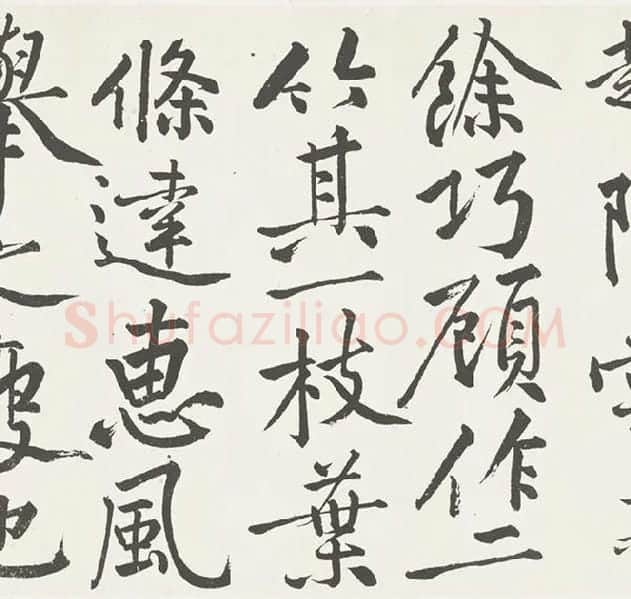 餘巧顧作二
竹其一枝葉
條達惠風
舉之
Shufaziliao.COM